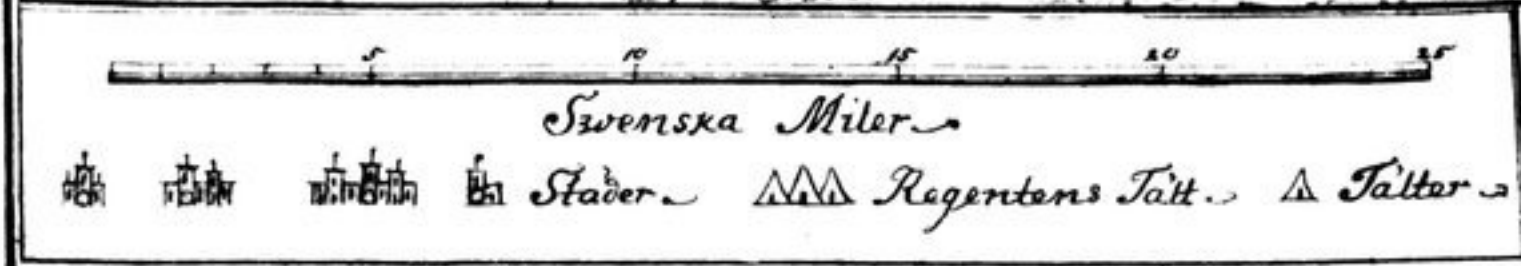 5 10 15 20 25
Swenska Miler
Städer Regentens Tält Tälter